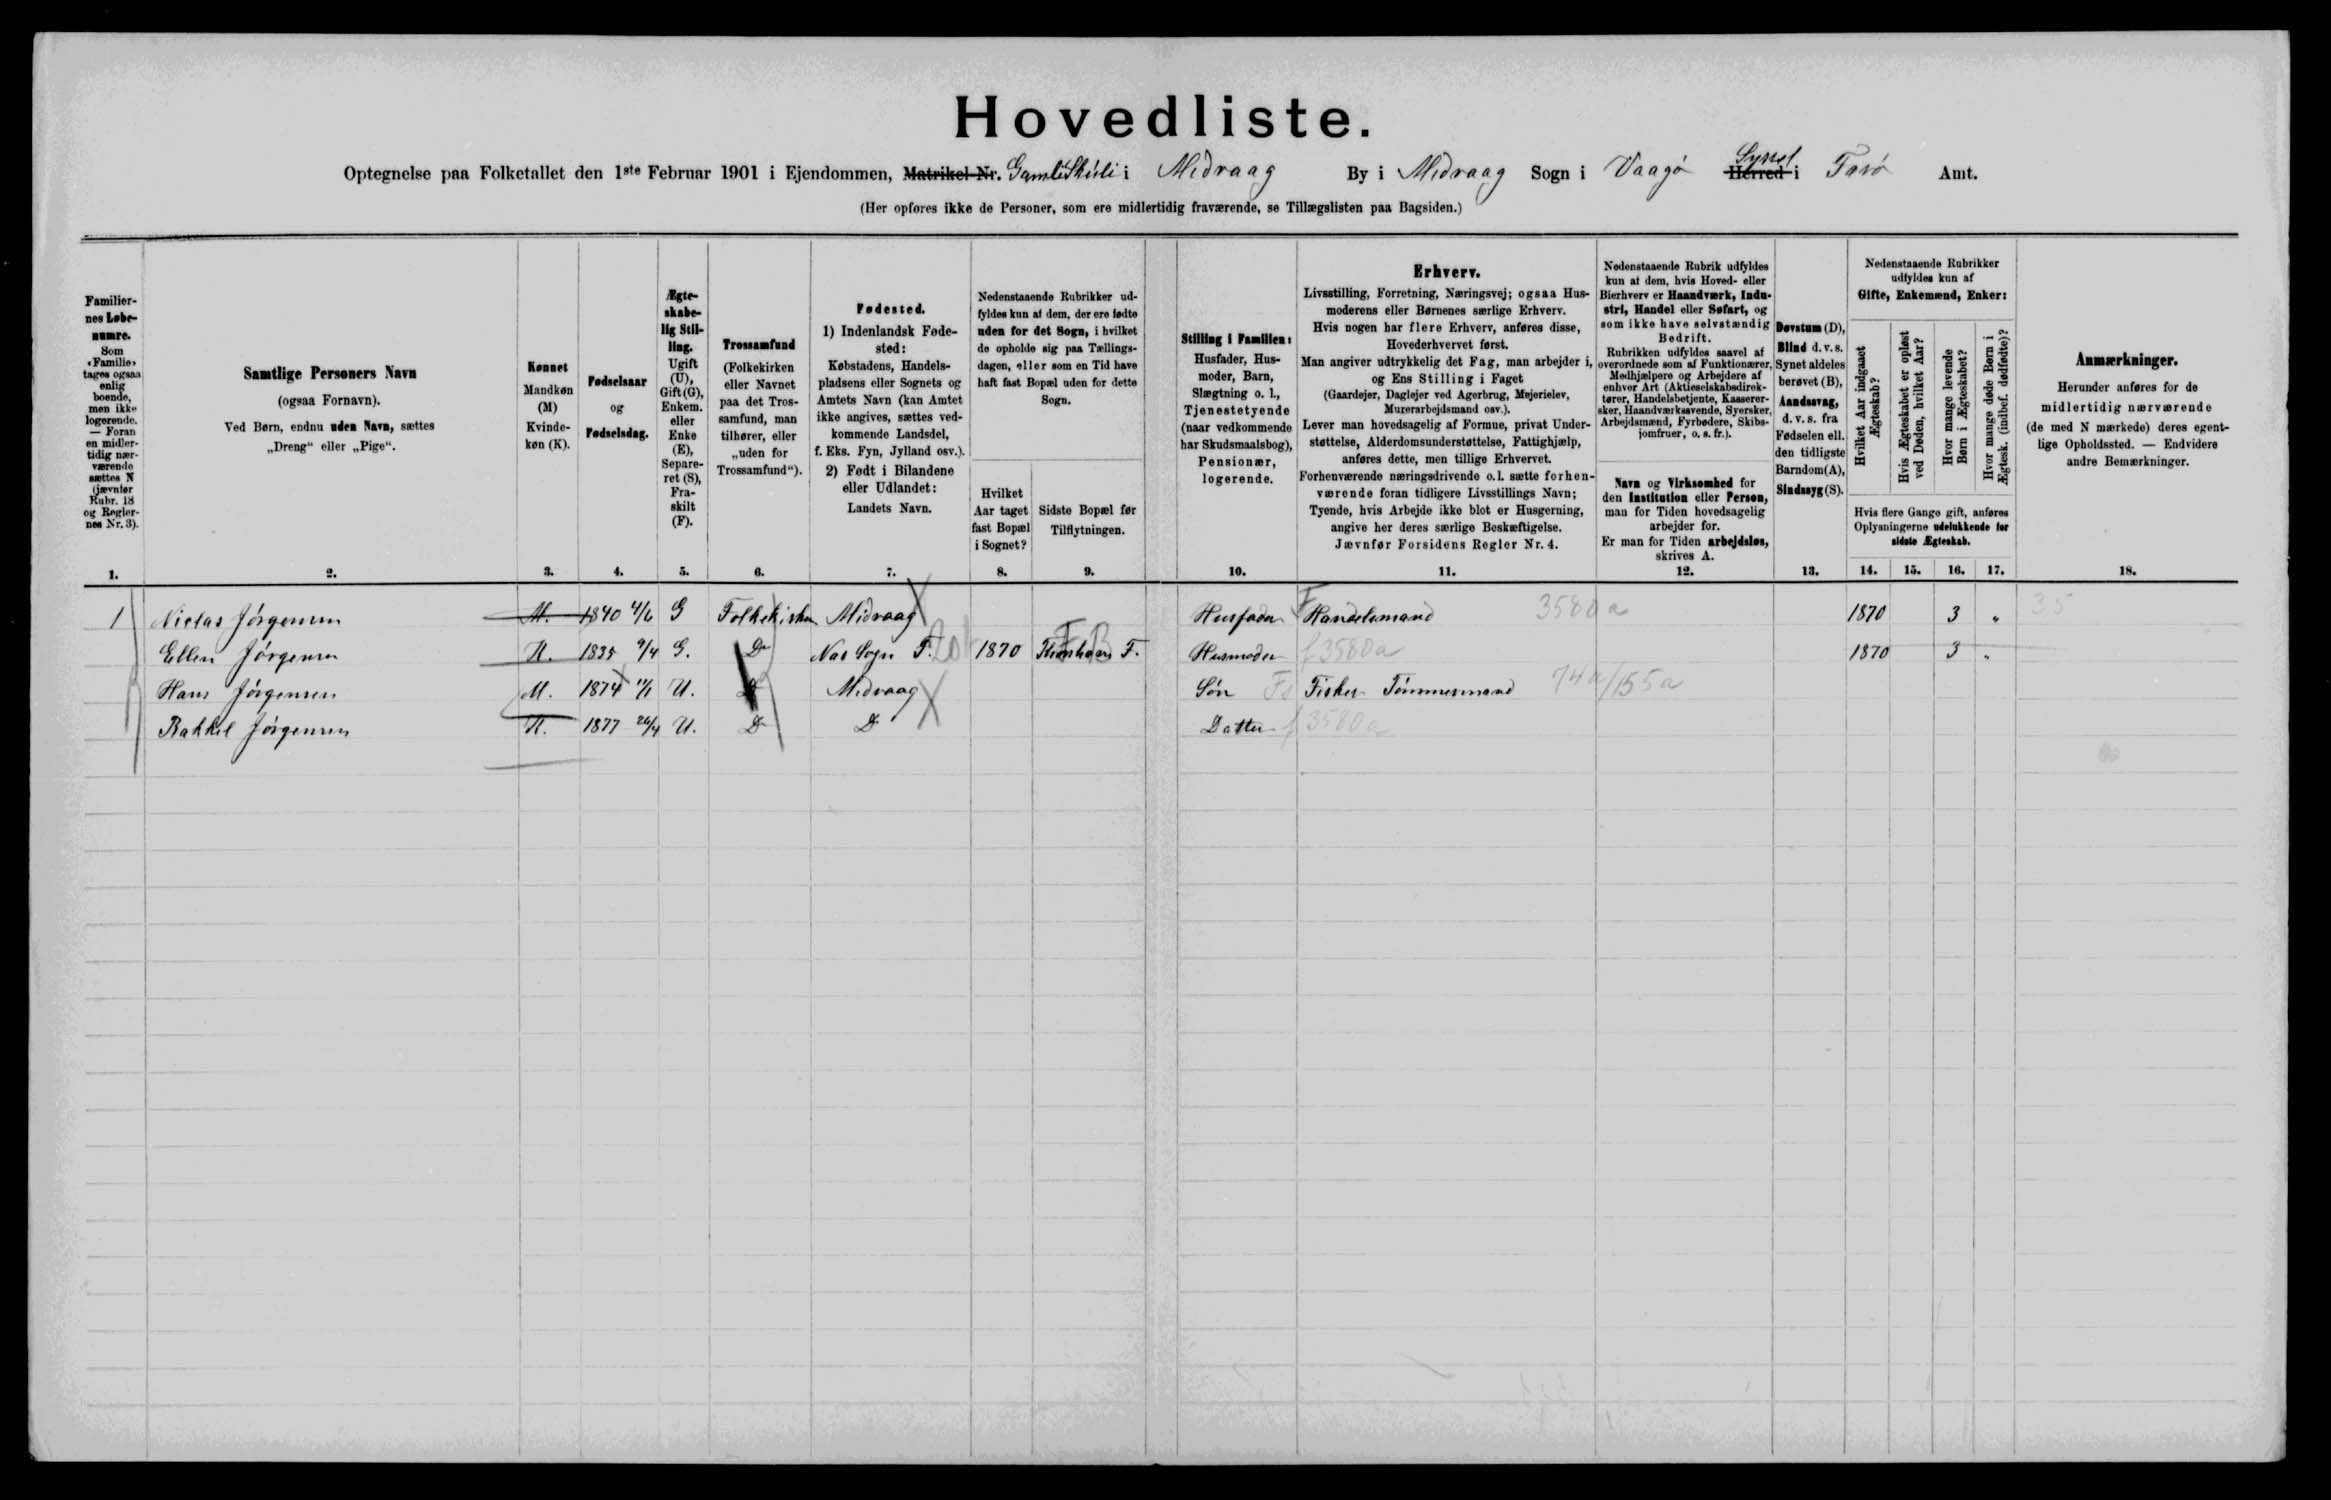 Hovedliste.
Optegnelse paa Folketallet den 1ste Februar 1901 i Ejendommen, Matrikel-Nr. Gamli Skúli i Midvaag By i Midvaag Sogn i Vaagø Herred Syssel i Færø Amt.
(Her opføres ikke de Personer, som ere midlertidig fraværende, se Tillægslisten paa Bagsiden.)
Familier-
nes Løbe-
numre.
Som
«Familie»
tages ogsaa
enlig
boende,
men ikke
logerende.
— Foran
en midler-
tidig nær-
værende
sættes N
(jævnfør
Rubr. 18
og Regler-
nes Nr. 3).
Samtlige Personers Navn
(ogsaa Fornavn).
Ved Børn, endnu uden Navn, sættes
„Dreng“ eller „Pige“.
Kønnet
Mandkøn
(M)
Kvinde-
køn (K).
Fødselsaar
og
Fødselsdag.
Ægte-
skabe-
lig Stil-
ling.
Ugift
(U),
Gift (G),
Enkem.
eller
Enke
(E),
Separe-
ret (S),
Fra-
skilt
(F).
Trossamfund
(Folkekirken
eller Navnet
paa det Tros-
samfund, man
tilhører, eller
„uden for
Trossamfund“).
Fødested.
1) Indenlandsk Føde-
sted:
Købstadens, Handels-
pladsens eller Sognets og
Amtets Navn (kan Amtet
ikke angives, sættes ved-
kommende Landsdel,
f. Eks. Fyn, Jylland osv.).
2) Født i Bilandene
eller Udlandet:
Landets Navn.
Nedenstaaende Rubrikker ud-
fyldes kun af dem, der ere fødte
uden for det Sogn, i hvilket
de opholde sig paa Tællings-
dagen, eller som en Tid have
haft fast Bopæl uden for dette
Sogn.
Hvilket
Aar taget
fast Bopæl
i Sognet?
Sidste Bopæl før
Tilflytningen.
Stilling i Familien:
Husfader, Hus-
moder, Barn,
Slægtning o. l.,
Tjenestetyende
(naar vedkommende
har Skudsmaalsbog),
Pensionær,
logerende.
Erhverv.
Livsstilling, Forretning, Næringsvej; ogsaa Hus-
moderens eller Børnenes særlige Erhverv.
Hvis nogen har flere Erhverv, anføres disse,
Hovederhvervet først.
Man angiver udtrykkelig det Fag, man arbejder i,
og Ens Stilling i Faget
(Gaardejer, Daglejer ved Agerbrug, Mejerielev,
Murerarbejdsmand osv.).
Lever man hovedsagelig af Formue, privat Under-
støttelse, Alderdomsunderstøttelse, Fattighjælp,
anføres dette, men tillige Erhvervet.
Forhenværende næringsdrivende o. l. sætte forhen-
værende foran tidligere Livsstillings Navn;
Tyende, hvis Arbejde ikke blot er Husgerning,
angive her deres særlige Beskæftigelse.
Jævnfør Forsidens Regler Nr. 4.
Nedenstaaende Rubrik udfyldes
kun af dem, hvis Hoved- eller
Bierhverv er Haandværk, Indu-
stri, Handel eller Søfart, og
som ikke have selvstændig
Bedrift.
Rubrikken udfyldes saavel af
overordnede som af Funktionærer,
Medhjælpere og Arbejdere af
enhver Art (Aktieselskabsdirek-
tører, Handelsbetjente, Kasserer-
sker, Haandværksvende, Syersker,
Arbejdsmænd, Fyrbødere, Skibs-
jomfruer, o. s. fr.).
Navn og Virksomhed for
den Institution eller Person,
man for Tiden hovedsagelig
arbejder for.
Er man for Tiden arbejdsløs,
skrives A.
Døvstum (D),
Blind d. v. s.
Synet aldeles
berøvet (B),
Aandssvag,
d. v. s. fra
Fødselen ell.
den tidligste
Barndom (A),
Sindssyg (S).
Nedenstaaende Rubrikker
udfyldes kun af
Gifte, Enkemænd, Enker:
Hvilket Aar indgaaet
Ægteskab?
Hvis Ægteskabet er opløst
ved Døden, hvilket Aar?
Hvor mange levende
Børn i Ægteskabet?
Hvor mange døde Børn i
Ægtesk. (indbef. dødfødte)?
Hvis flere Gange gift, anføres
Oplysningerne udelukkende for
sidste Ægteskab.
Anmærkninger.
Herunder anføres for de
midlertidig nærværende
(de med N mærkede) deres egent-
lige Opholdssted. — Endvidere
andre Bemærkninger.
1. 2. 3. 4. 5. 6. 7. 8. 9. 10. 11. 12. 13. 14. 15. 16. 17. 18.
1 Niclas Jörgensen M. 1840 4/6 G Folkekirken Midvaag Husfader F Handelsmand 3580a 1870 3 „ 35
Ellen Jörgensen K. 1835 9/4 G. Do Nas Sogn F. 1870 Thorshavn F. Husmoder f 3580a 1870 3 „
Hans Jörgensen M. 1874 11/1 U. Do Midvaag Sön Fs Fisker Tömmermand 74a/155a
Rakkel Jörgensen K. 1877 26/4 U. Do Do Datter f 3580a